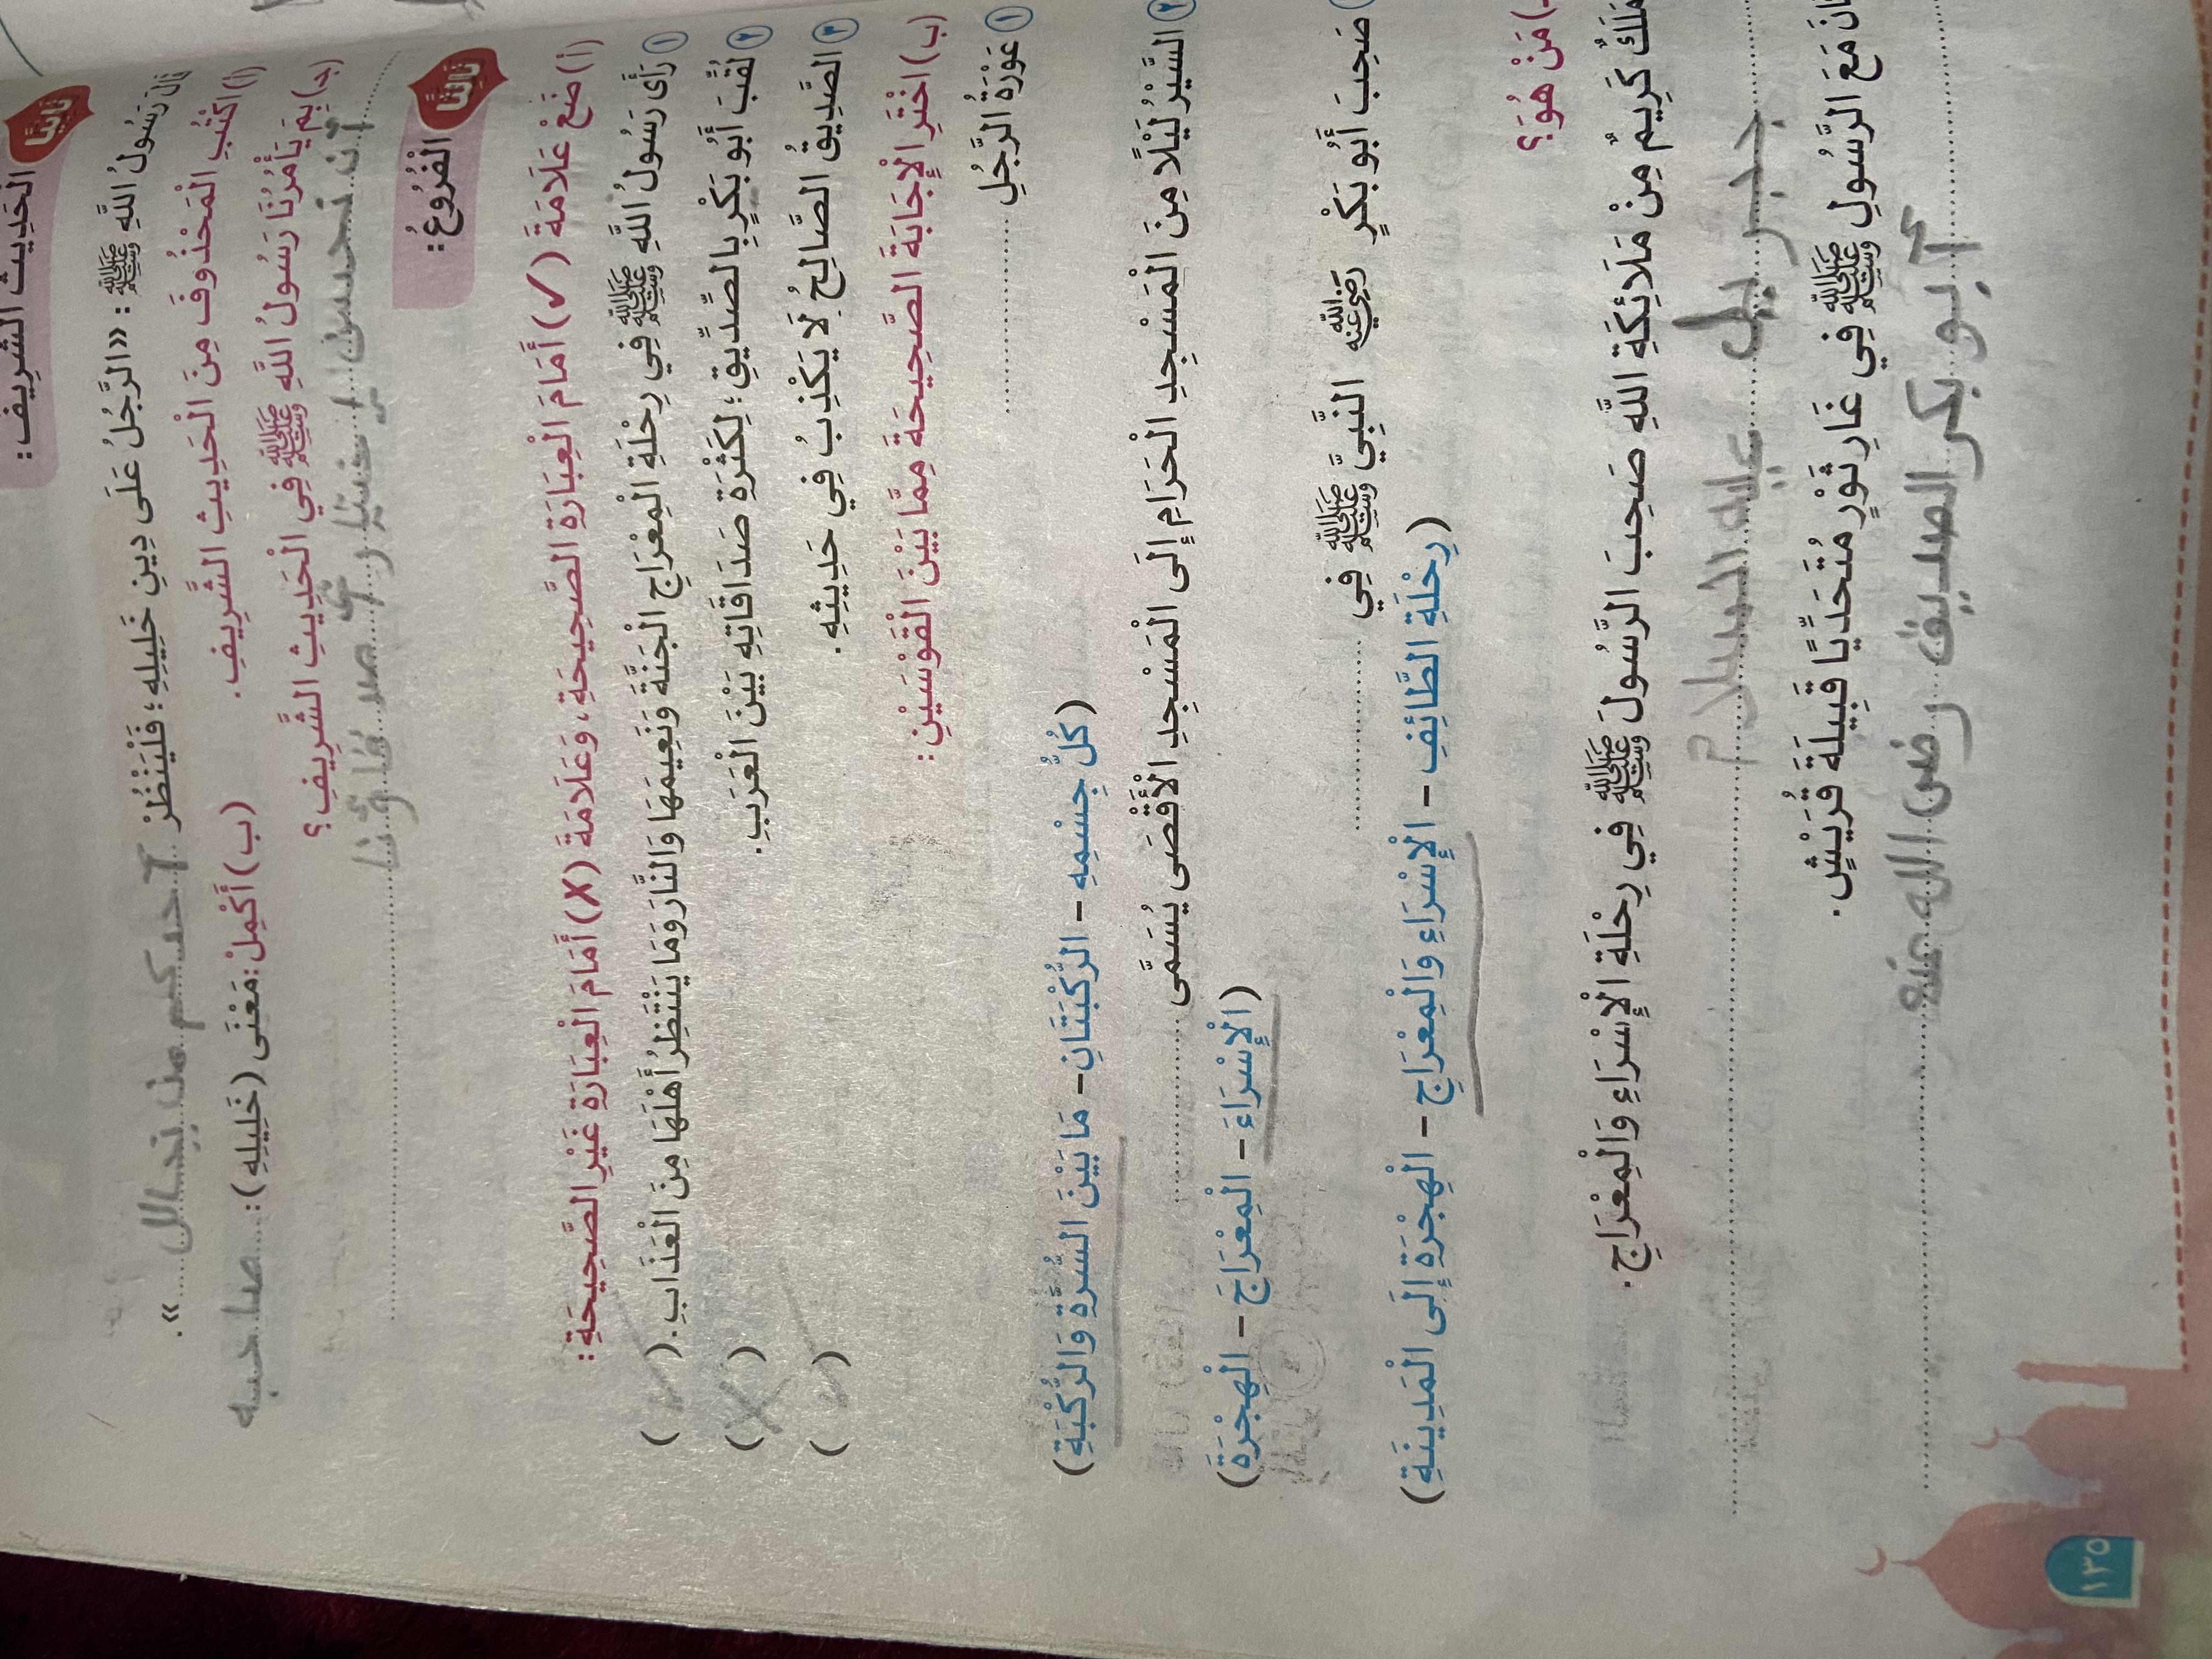 الحديث الشريف:
ثانيًا
قال رسول الله ﷺ: «الرَّجُلُ عَلَى دِينِ خَلِيلِهِ؛ فَلْيَنْظُرْ أحدكم من يخالل».
(أ) اكْتُبِ الْمَحْذُوفَ مِنَ الْحَدِيثِ الشَّرِيفِ. (ب) أَكْمِلْ: مَعْنَى (خَلِيلِهِ): صاحبه
(جـ) بِمَ يَأْمُرُنَا رَسُولُ اللَّهِ ﷺ فِي الْحَدِيثِ الشَّرِيفِ؟
أن نحسن إختيار أصدقاؤنا
ثالثًا
الْفُرُوعُ:
(أ) ضَعْ عَلَامَةَ (✓) أَمَامَ الْعِبَارَةِ الصَّحِيحَةِ، وَعَلَامَةَ (✗) أَمَامَ الْعِبَارَةِ غَيْرِ الصَّحِيحَةِ:
١ رَأَى رَسُولُ اللَّهِ ﷺ فِي رِحْلَةِ الْمِعْرَاجِ الْجَنَّةَ وَنَعِيمَهَا وَالنَّارَ وَمَا يَنْتَظِرُ أَهْلَهَا مِنَ الْعَذَابِ. (✓)
٢ لُقِّبَ أَبُو بَكْرٍ بِالصِّدِّيقِ؛ لِكَثْرَةِ صَدَاقَاتِهِ بَيْنَ الْعَرَبِ. (✗)
٣ الصَّدِيقُ الصَّالِحُ لَا يَكْذِبُ فِي حَدِيثِهِ. (✓)
(ب) اخْتَرِ الْإِجَابَةَ الصَّحِيحَةَ مِمَّا بَيْنَ الْقَوْسَيْنِ:
١ عَوْرَةُ الرَّجُلِ ..........
(كُلُّ جِسْمِهِ - الرُّكْبَتَانِ - مَا بَيْنَ السُّرَّةِ وَالرُّكْبَةِ)
٢ السَّيْرُ لَيْلًا مِنَ الْمَسْجِدِ الْحَرَامِ إِلَى الْمَسْجِدِ الْأَقْصَى يُسَمَّى ..........
(الْإِسْرَاءَ - الْمِعْرَاجَ - الْهِجْرَةَ)
صَحِبَ أَبُو بَكْرٍ رضي الله عنه النَّبِيَّ ﷺ فِي ..........
(رِحْلَةِ الطَّائِفِ - الْإِسْرَاءِ وَالْمِعْرَاجِ - الْهِجْرَةِ إِلَى الْمَدِينَةِ)
مَنْ هُوَ؟
مَلَكٌ كَرِيمٌ مِنْ مَلَائِكَةِ اللَّهِ صَحِبَ الرَّسُولَ ﷺ فِي رِحْلَةِ الْإِسْرَاءِ وَالْمِعْرَاجِ.
جبريل عليه السلام
مَعَ الرَّسُولِ ﷺ فِي غَارِ ثَوْرٍ مُتَحَدِّيًا قَبِيلَةَ قُرَيْشٍ.
أبو بكر الصديق رضي الله عنه
١٣٥